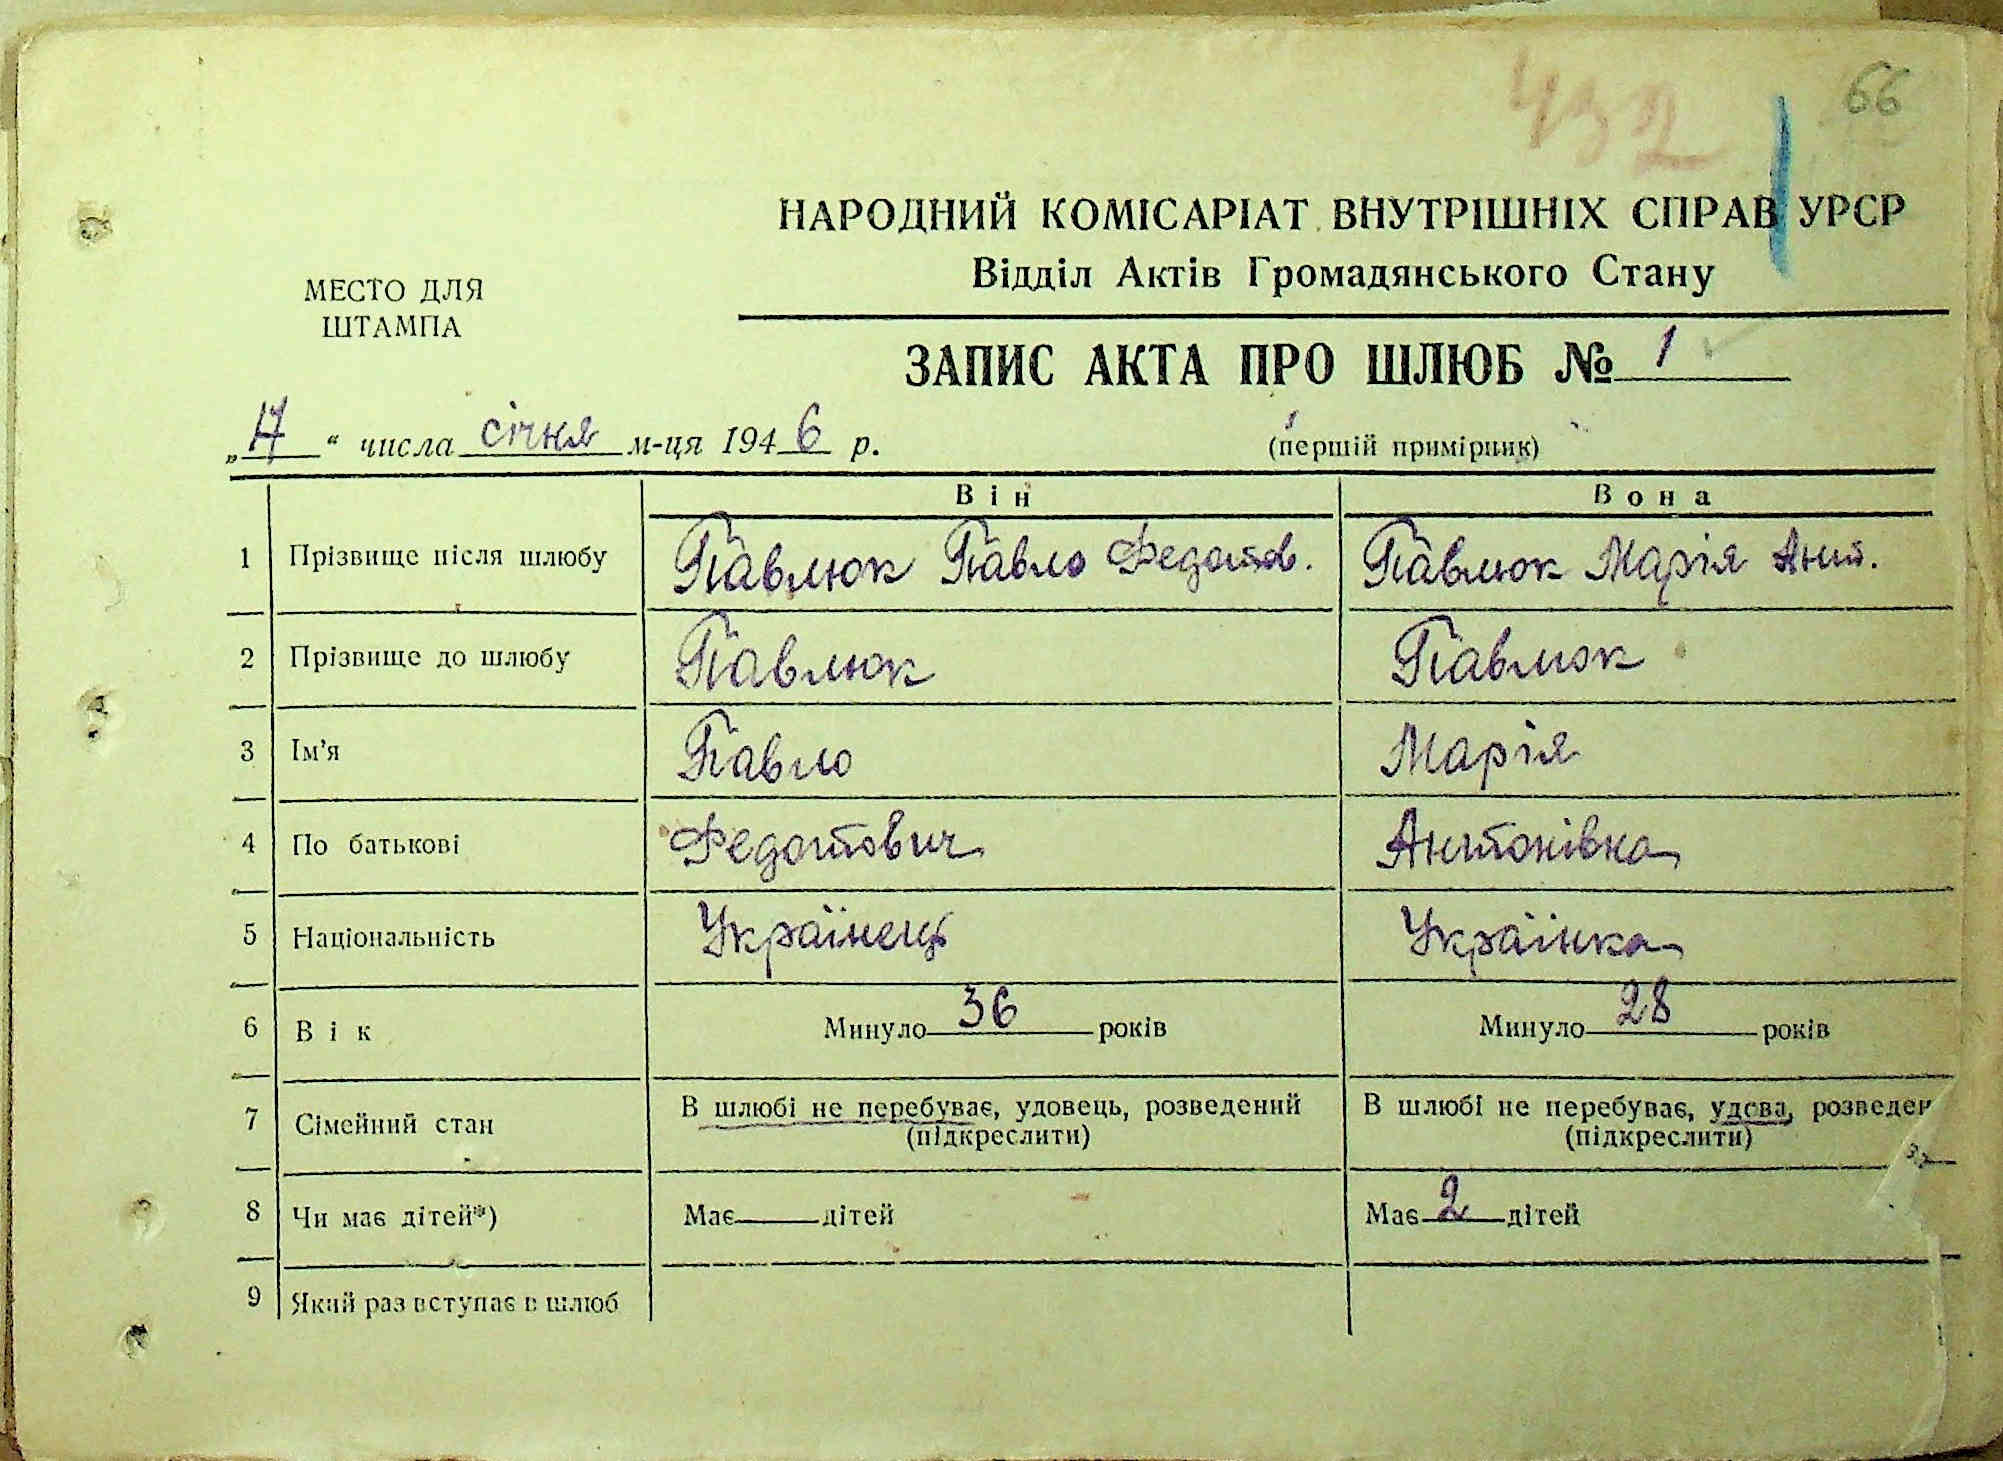 432
66
НАРОДНИЙ КОМІСАРІАТ ВНУТРІШНІХ СПРАВ УРСР
Відділ Актів Громадянського Стану
МЕСТО ДЛЯ
ШТАМПА
ЗАПИС АКТА ПРО ШЛЮБ № 1
„17“ числа січня м-ця 1946 р.
(першій примірник)
Він Вона
1 Прізвище після шлюбу Павлюк Павло Федотов. Павлюк Марія Ант.
2 Прізвище до шлюбу Павлюк Павлюк
3 Ім'я Павло Марія
4 По батькові Федотович Антонівна
5 Національність Українець Українка
6 Вік Минуло 36 років Минуло 28 років
7 Сімейний стан В шлюбі не перебуває, удовець, розведений В шлюбі не перебуває, удова, розведен
(підкреслити) (підкреслити)
8 Чи має дітей*) Має дітей Має 2 дітей
9 Який раз вступає в шлюб